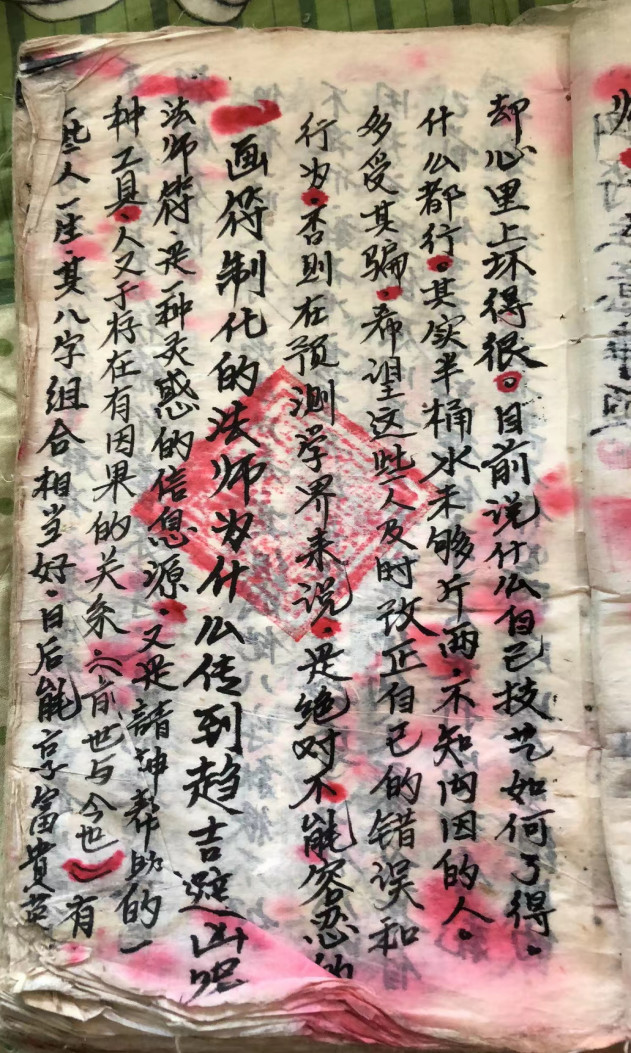 却心里上坏得很。目前说什么自己技艺如何了得。
什么都行。其实半桶水未够斤两。不知内因的人。
多受其骗。希望这些人及时改正自己的错误和
行为。否则在预测学界来说。是绝对不能容忍的
画符制化的法师为什么传到趋吉避凶呢
法师符。是一种灵惑的信息源。又是請神帮助的一
种工具。人又于存在有因果的关系(前世与今世)有
一些人一生。其八字组合相当好。日后能享富貴